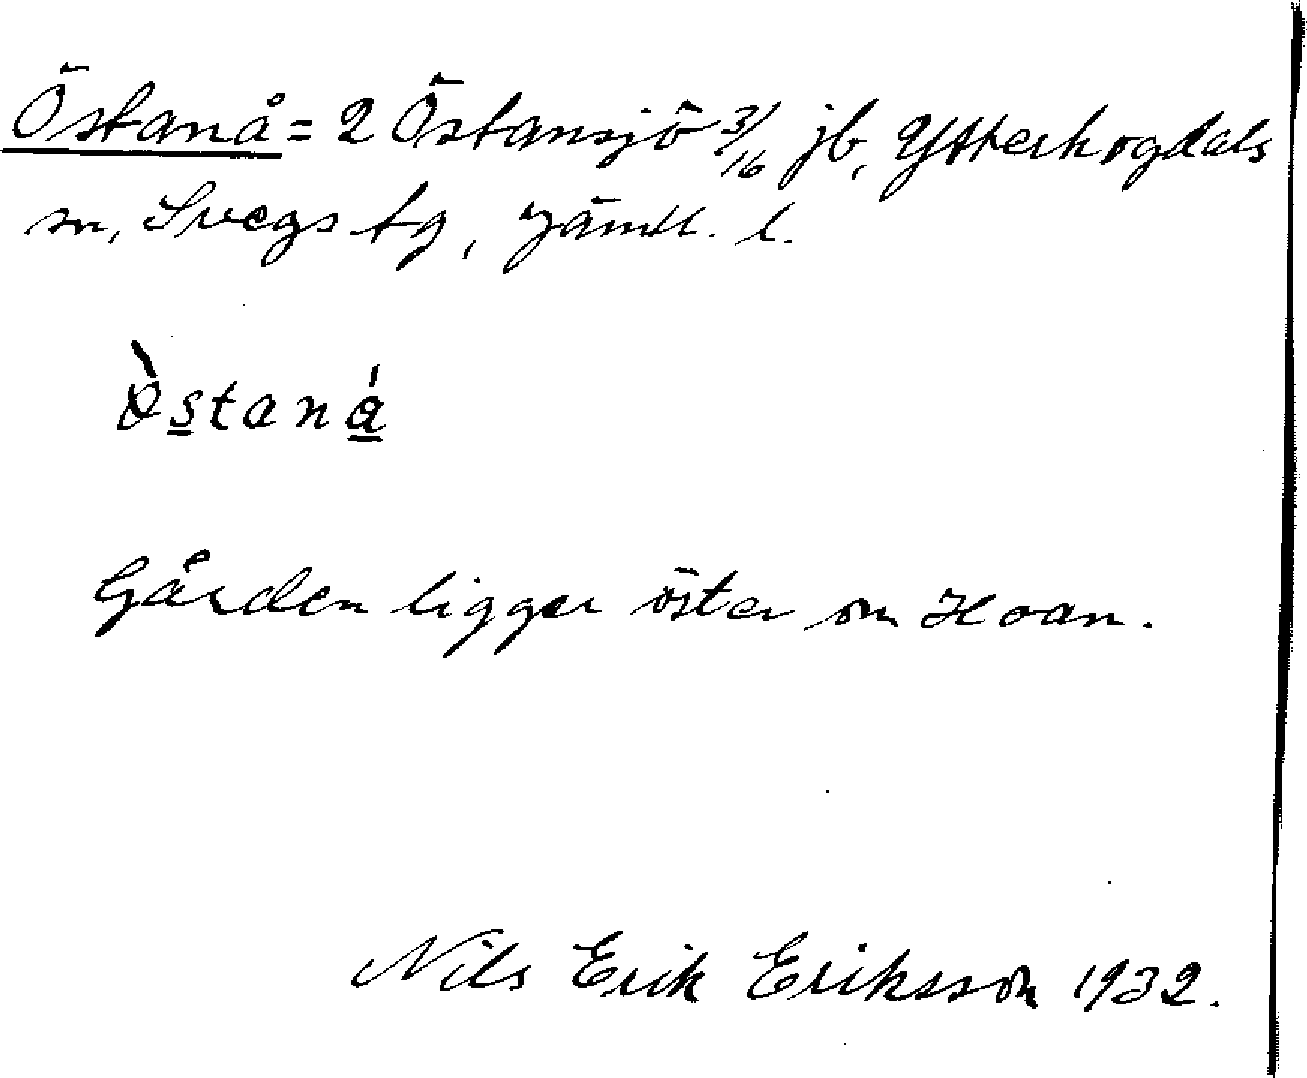 Östanå = 2 Östansjö 3/16 jb, Ytterhogdals
sn, Svegs tg, Jämtl. l.
Ò̀staná
Gården ligger öster om Hoan.
Nils Erik Eriksson 1932.